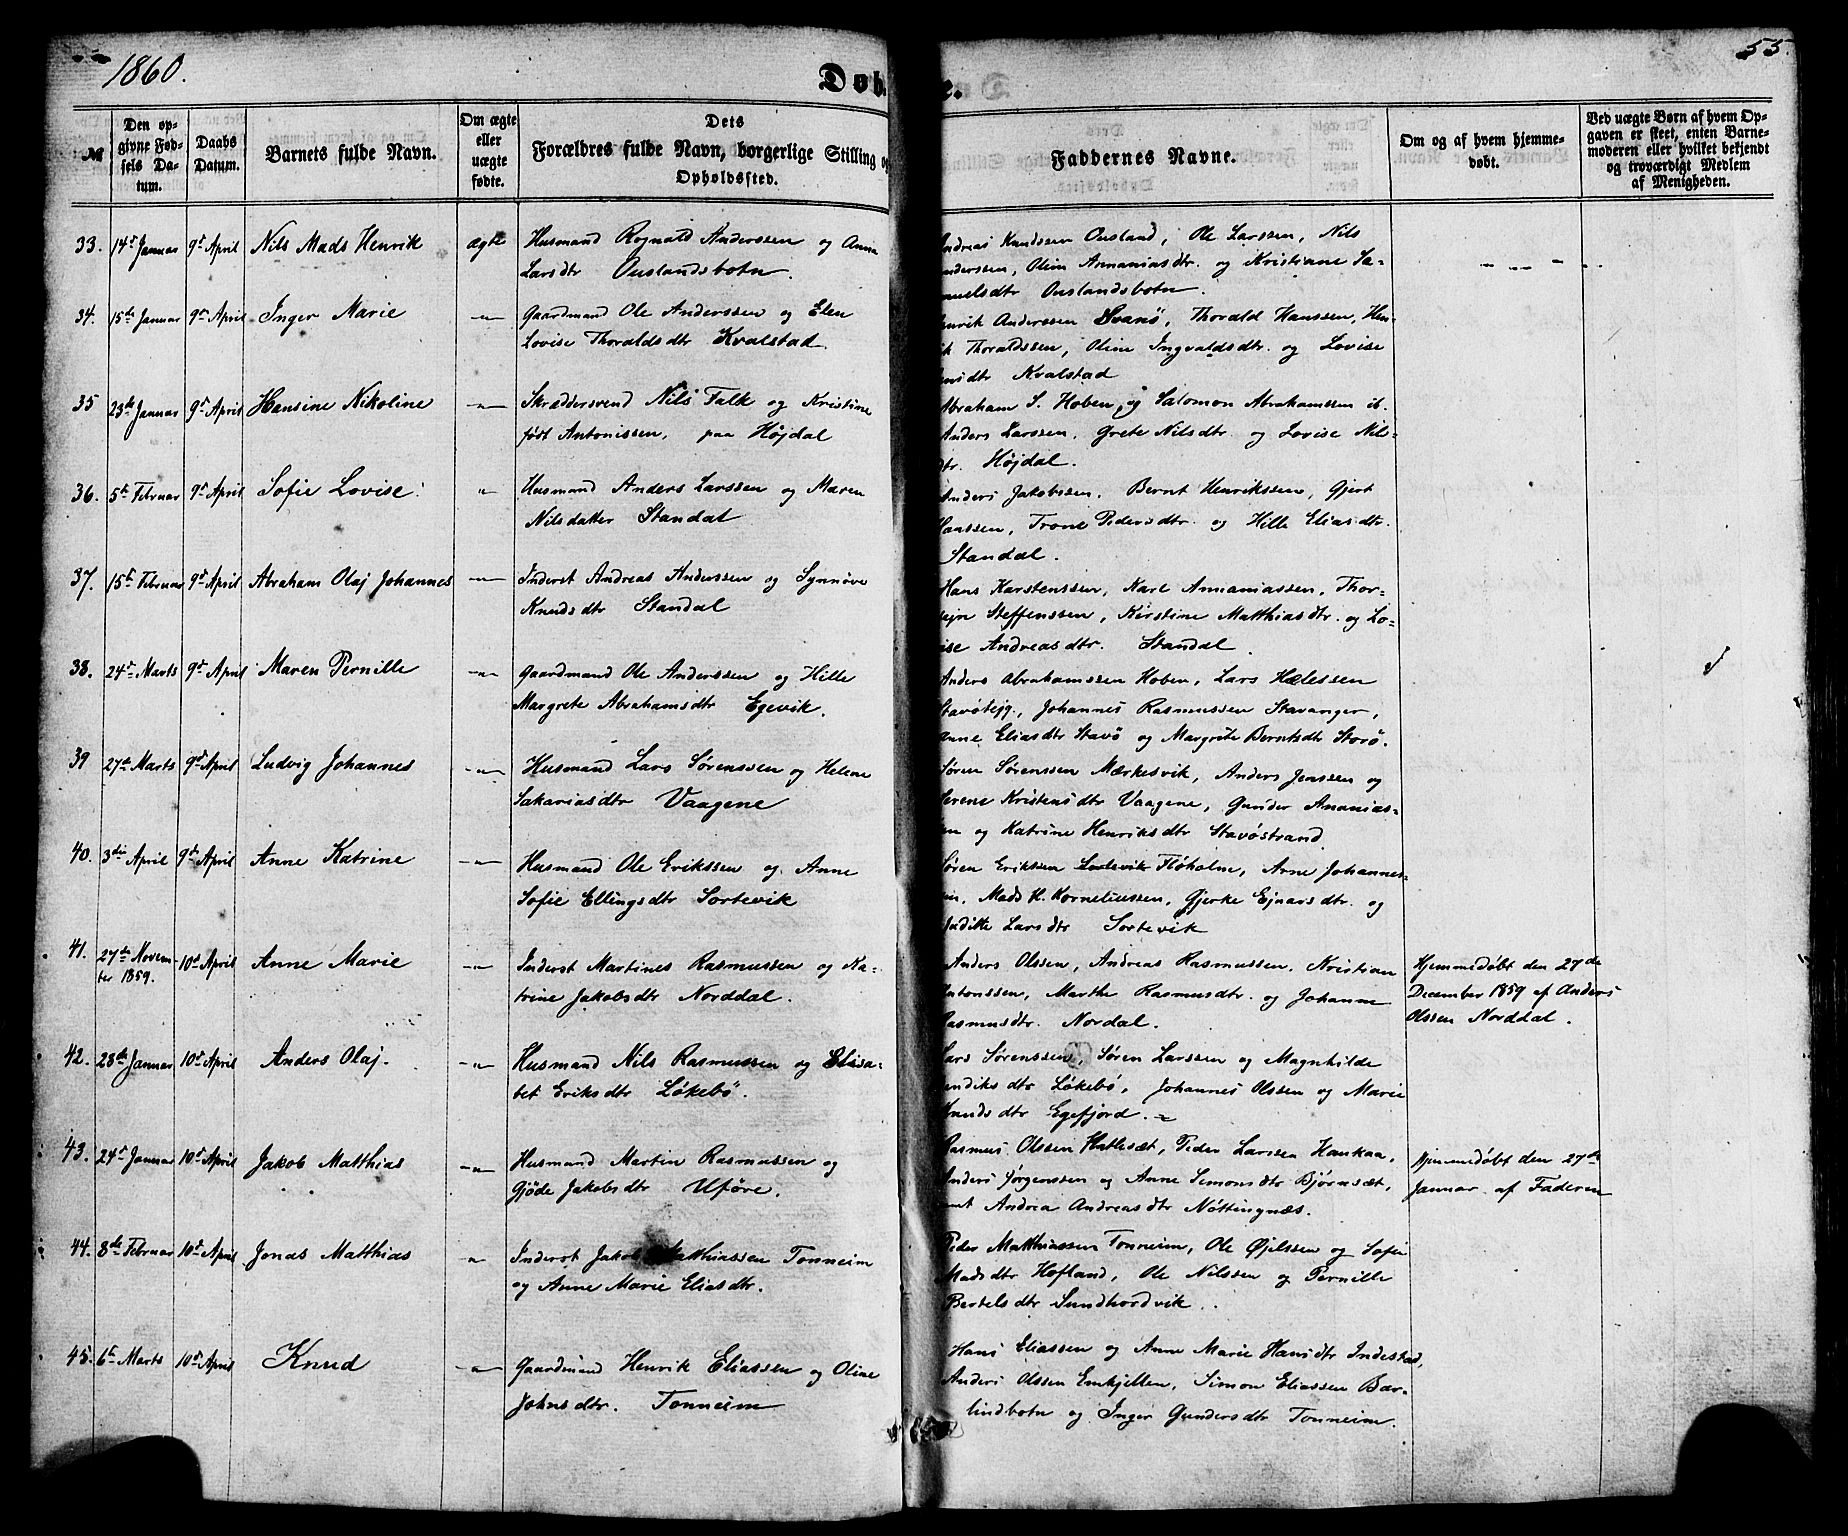 1860.
55.
Døb
№
Den op-
givne Fød-
sels Da-
tum.
Daabs
Datum.
Barnets fulde Navn.
Om ægte
eller
uægte
fødte.
Dets
Forældres fulde Navn, borgerlige Stilling
Opholdssted.
Faddernes Navne.
Om og af hvem hjemme-
døbt.
Ved uægte Børn af hvem Op-
gaven er skeet, enten Barne-
moderen eller hvilket bekjendt
og troværdigt Medlem
af Menigheden.
33. 14d Januar 9d April Nils Mads Henrik ægte Husmand Rognald Anderssen og Anna
Larsdtr Ouslandsbotn.
Andreas Knudssen Ousland, Ole Larssen, Nils
Anderssen, Oline Annaniasdtr. og Kristiane Sa-
muelsdtr Ouslandsbotn.
34. 15de Januar 9d April Inger Marie -"- Gaardmand Ole Anderssen og Elen
Lovise Thoraldsdtr Kvalstad
Henrik Anderssen Svanø, Thorald Hanssen, Hen-
rik Thoraldssen, Oline Ingvaldsdtr. og Lovise
Kvalstad
35 23de Januar 9d April Hansine Nikoline -"- Skræddersvend Nils Falk og Kristine
født Antonissen, paa Højdal
Abraham S. Hoben, og Salomon Abrahamssen ib.
Anders Larssen, Grete Nilsdtr. og Lovise Nils-
dtr. Højdal.
36. 5te Februar 9d April Sofie Lovise " Husmand Anders Larssen og Maren
Nilsdatter Standal
Anders Jakobssen, Bernt Henrikssen, Gjert
Hanssen, Trone Pedersdtr. og Hille Eliasdtr.
Standal.
37. 15te Februar 9d April Abraham Olaj Johannes -"- Inderst Andreas Anderssen og Synnøve
Knudsdtr Standal
Hans Karstenssen, Karl Annaniassen, Thor-
stejn Steffenssen, Kirstine Matthiasdtr. og Lo-
vise Andreasdtr. Standal.
38. 24d Marts 9d April Maren Pernille -"- Gaardmand Ole Anderssen og Hille
Margrete Abrahamsdtr Egevik.
Anders Abrahamssen Hoben, Lars Hælessen
Johannes Rasmussen Stavanger,
Anne Eliasdtr Stavø og Margrete Berntsdtr Storø.
39 27de Marts 9d April Ludvig Johannes -"- Husmand Lars Sørenssen og Helene
Sakariasdtr Vaagene
Søren Sørenssen Mærkesvik, Anders Jenssen og
Serene Kristensdtr Vaagene, Gunder Ananias-
sen og Katrine Henriksdtr Stavøstrand.
40. 3die April 9de April Anne Katrine -"- Husmand Ole Erikssen og Anne
Sofie Ellingsdtr Sortevik
Søren Erikssen Sortevik Fløholm, Arne Johannes-
sen, Mads H. Korneliussen, Gjerke Ejnarsdtr. og
Larsdtr Sortevik
41. 27de Novem-
ber 1859. 10d April Anne Marie -"- Inderst Martines Rasmussen og Ka-
trine Jakobsdtr Norddal.
Anders Olssen, Andreas Rasmussen, Kristian
Antonssen, Marthe Rasmusdtr. og Johanne
Rasmusdtr. Nordal.
Hjemmedøbt den 27de
December 1859 af Anders
Olssen Norddal.
42. 28de Januar 10d April Anders Olaj. -"- Husmand Nils Rasmussen og Elisa-
bet Eriksdtr Løkebø.
Lars Sørenssen, Søren Larssen og Magnhilde
Løkebø, Johannes Olssen og Marie
Knudsdtr Egefjord.
43. 24d Januar 10d April Jakob Matthias -"- Husmand Martin Rasmussen og
Gjøde Jakobsdtr Uføre.
Rasmus Olssen Hatleset, Peder Larssen Haukaa,
Anders Jørgenssen og Anne Simonsdtr Bjørnsæt,
samt Andrea Andreasdtr Nøttingnæs.
Hjemmedøbt den 27de
Januar af Faderen
44. 8de Februar 10d April Jonas Matthias " Inderst Jakob Matthiassen Tonneim
og Anne Marie Eliasdtr.
Peder Matthiassen Tonneim, Ole Øjelssen og Sofie
Madsdtr Hofland, Ole Nilssen og Pernille
Bertelsdtr Sundhordvik.
45. 6te Marts 10d April Knud -"- Gaardmand Henrik Eliassen og Oline
Johnsdtr. Tonneim
Hans Eliassen og Anne Marie Hansdtr Indestad,
Anders Olssen Emhjellen, Simon Eliassen Bar-
lindbotn og Inger Gundersdtr Tonneim.